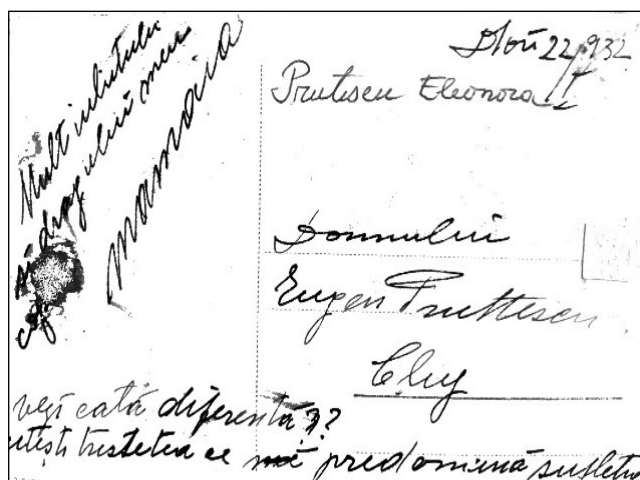 Mult iubitului
și dragului meu
mamaia
Noii 22, 932
Prutescu Eleonora
Domnului
Eugen Pruttescu
Cluj
vezi cată diferentă??
tristetea ce mă predomină sufletu